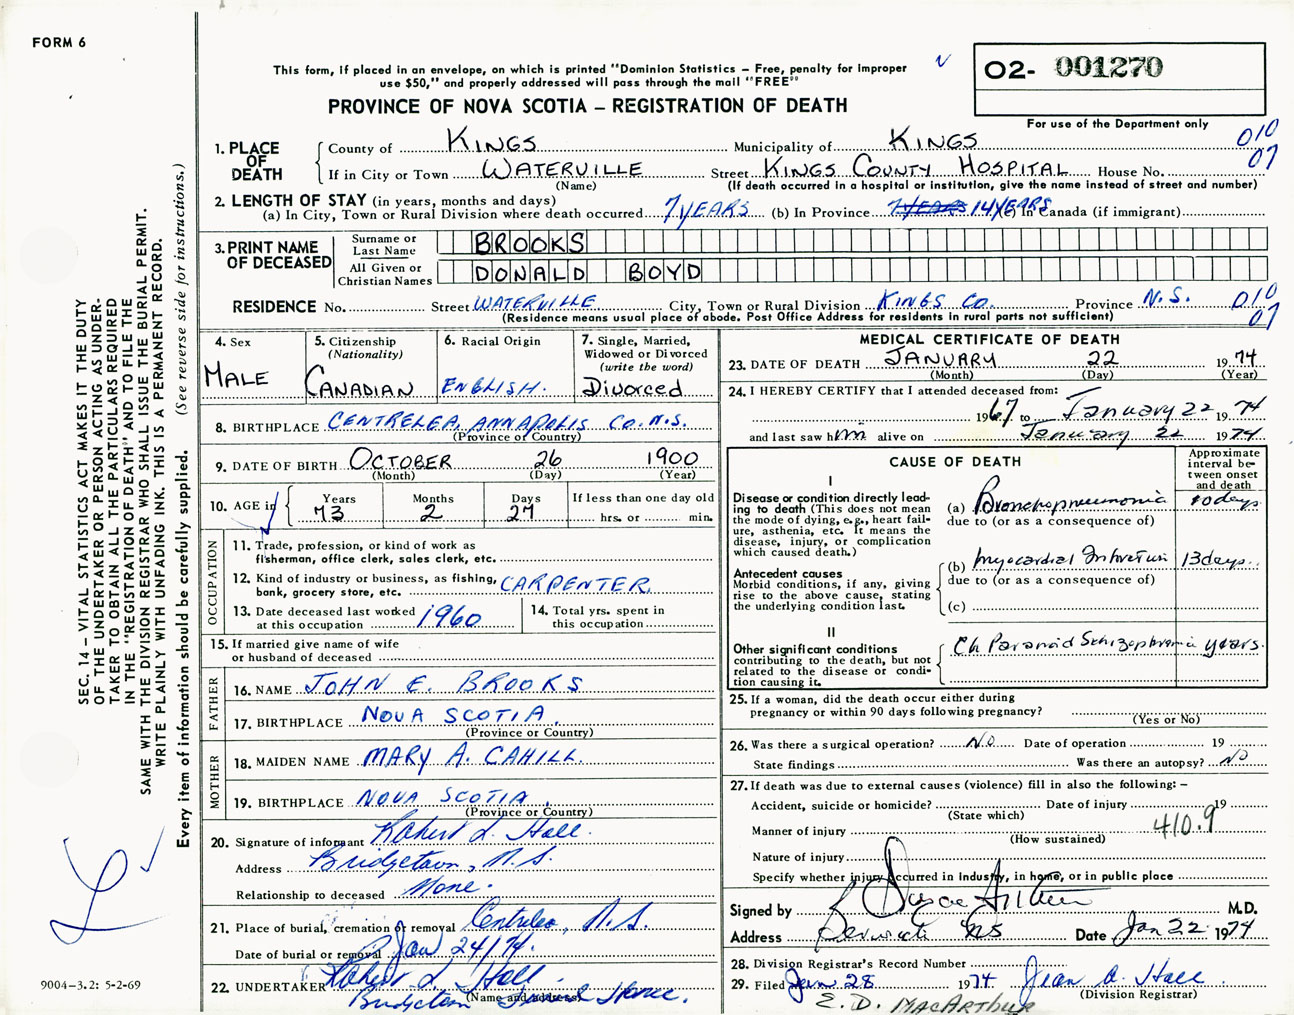 FORM 6
This form, if placed in an envelope, on which is printed "Dominion Statistics – Free, penalty for improper
use $50," and properly addressed will pass through the mail "FREE"
O2- 001270
For use of the Department only
PROVINCE OF NOVA SCOTIA – REGISTRATION OF DEATH
SEC. 14 – VITAL STATISTICS ACT MAKES IT THE DUTY
OF THE UNDERTAKER OR PERSON ACTING AS UNDER-
TAKER TO OBTAIN ALL THE PARTICULARS REQUIRED
IN THE "REGISTRATION OF DEATH" AND TO FILE THE
SAME WITH THE DIVISION REGISTRAR WHO SHALL ISSUE THE BURIAL PERMIT.
WRITE PLAINLY WITH UNFADING INK. THIS IS A PERMANENT RECORD.
Every item of information should be carefully supplied. (See reverse side for instructions.)
1. PLACE OF DEATH
County of KINGS Municipality of KINGS 010
If in City or Town WATERVILLE Street KINGS COUNTY HOSPITAL House No. 07
(Name) (If death occurred in a hospital or institution, give the name instead of street and number)
2. LENGTH OF STAY (in years, months and days)
(a) In City, Town or Rural Division where death occurred 7 YEARS (b) In Province 7 YEARS 14 YEARS (c) In Canada (if immigrant)
3. PRINT NAME OF DECEASED
Surname or Last Name BROOKS
All Given or Christian Names DONALD BOYD
RESIDENCE No. Street WATERVILLE City, Town or Rural Division KINGS CO. Province N.S. 010
(Residence means usual place of abode. Post Office Address for residents in rural parts not sufficient) 07
4. Sex
MALE
5. Citizenship
(Nationality)
CANADIAN
6. Racial Origin
ENGLISH.
7. Single, Married,
Widowed or Divorced
(write the word)
Divorced
8. BIRTHPLACE CENTRELEA, ANNAPOLIS CO. N.S.
(Province or Country)
9. DATE OF BIRTH OCTOBER 26 1900
(Month) (Day) (Year)
10. AGE in Years Months Days If less than one day old
73 2 27 hrs. or min.
OCCUPATION
11. Trade, profession, or kind of work as
fisherman, office clerk, sales clerk, etc.
12. Kind of industry or business, as fishing,
bank, grocery store, etc. CARPENTER.
13. Date deceased last worked
at this occupation 1960
14. Total yrs. spent in
this occupation
15. If married give name of wife
or husband of deceased
FATHER
16. NAME JOHN E. BROOKS
17. BIRTHPLACE NOVA SCOTIA.
(Province or Country)
MOTHER
18. MAIDEN NAME MARY A. CAHILL.
19. BIRTHPLACE NOVA SCOTIA.
(Province or Country)
20. Signature of informant Robert L. Hall.
Address Bridgetown, N.S.
Relationship to deceased None.
21. Place of burial, cremation or removal Centrelea, N.S.
Date of burial or removal Jan 24/74.
22. UNDERTAKER Robert L. Hall
(Name and address) Bridgetown Funeral Home.
9004-3.2: 5-2-69
MEDICAL CERTIFICATE OF DEATH
23. DATE OF DEATH JANUARY 22 1974
(Month) (Day) (Year)
24. I HEREBY CERTIFY that I attended deceased from:
1967 to January 22 1974
and last saw him alive on January 22 1974
CAUSE OF DEATH
Approximate
interval be-
tween onset
and death
I
Disease or condition directly lead-
ing to death (This does not mean
the mode of dying, e.g., heart fail-
ure, asthenia, etc. It means the
disease, injury, or complication
which caused death.)
(a) Bronchopneumonia 10 days
due to (or as a consequence of)
Antecedent causes
Morbid conditions, if any, giving
rise to the above cause, stating
the underlying condition last.
(b) Myocardial Infarction 13 days
due to (or as a consequence of)
(c)
II
Other significant conditions
contributing to the death, but not
related to the disease or condi-
tion causing it.
Ch Paranoid Schizophrenia years.
25. If a woman, did the death occur either during
pregnancy or within 90 days following pregnancy?
(Yes or No)
26. Was there a surgical operation? NO Date of operation 19
State findings Was there an autopsy? NO
27. If death was due to external causes (violence) fill in also the following: –
Accident, suicide or homicide? Date of injury 19
(State which)
Manner of injury 410.9
(How sustained)
Nature of injury
Specify whether injury occurred in industry, in home, or in public place
Signed by M.D.
Address Berwick NS Date Jan 22 1974
28. Division Registrar's Record Number
29. Filed Jan 28 1974 Jean A. Hall
(Division Registrar)
E. D. MACARTHUR